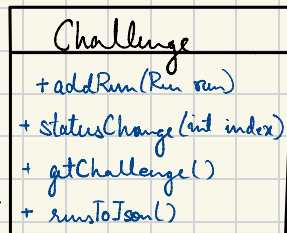 Challenge
+ addRun(Run run)
+ statusChange(int index)
+ getChallenge()
+ runsToJson()